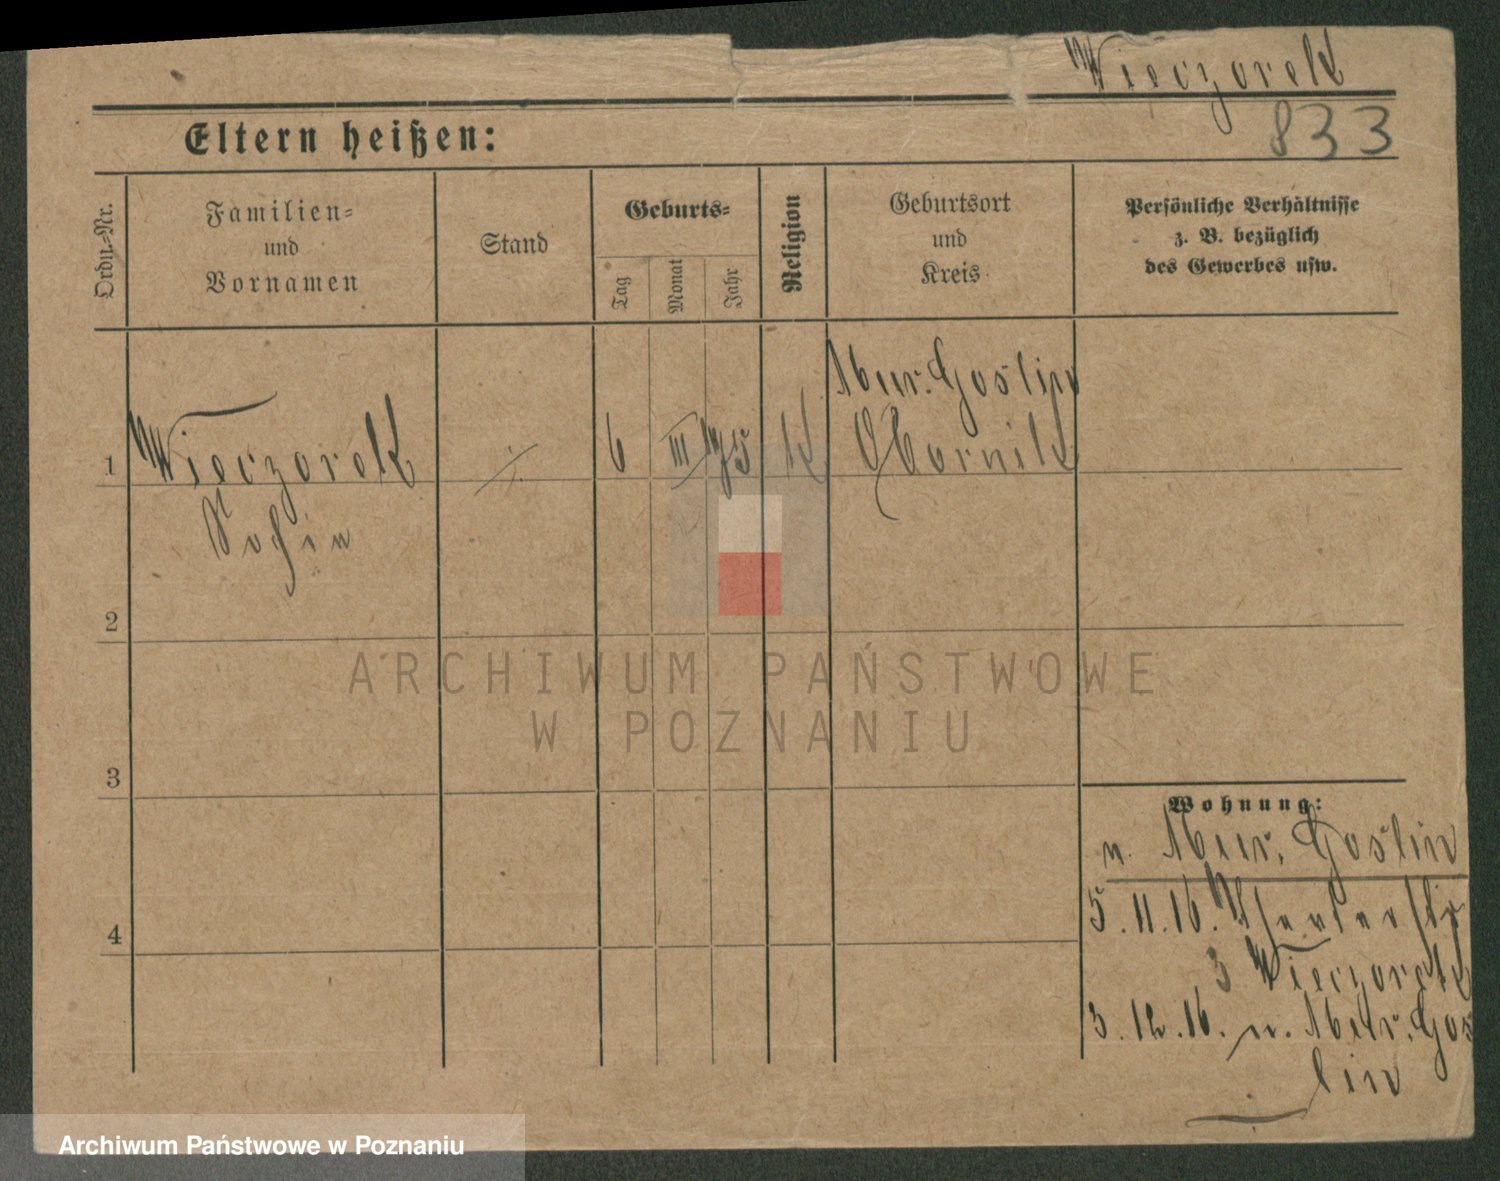 Wieczorek
833
Eltern heißen:
Ordn.-Nr.
Familien-
und
Vornamen
Stand
Geburts-
Tag
Monat
Jahr
Religion
Geburtsort
und
Kreis
Persönliche Verhältnisse
z. B. bezüglich
des Gewerbes usw.
1
Wieczorek
Sofia
6
III
75
K
Mur. Goslin
Obornik
2
3
4
ARCHIWUM PAŃSTWOWE
W POZNANIU
Wohnung:
n. Mur. Goslin
5.11.16.
3 Wieczorek
3.12.16. n. Mur. Gos
lin
Archiwum Państwowe w Poznaniu